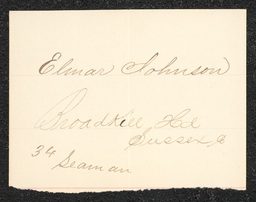 Elmar Johnson
Broadkill Hd
Sussex Co
34
Seaman